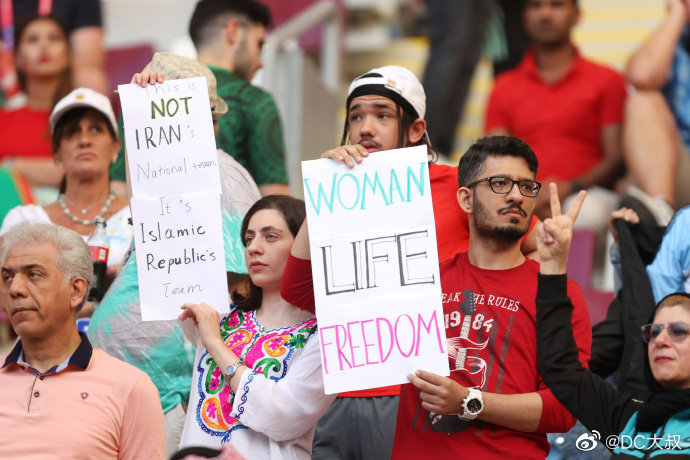 This is
NOT
IRAN's
National team
It's
Islamic
Republic's
Team
WOMAN
LIFE
FREEDOM
THE RULES
1984
@DC大叔